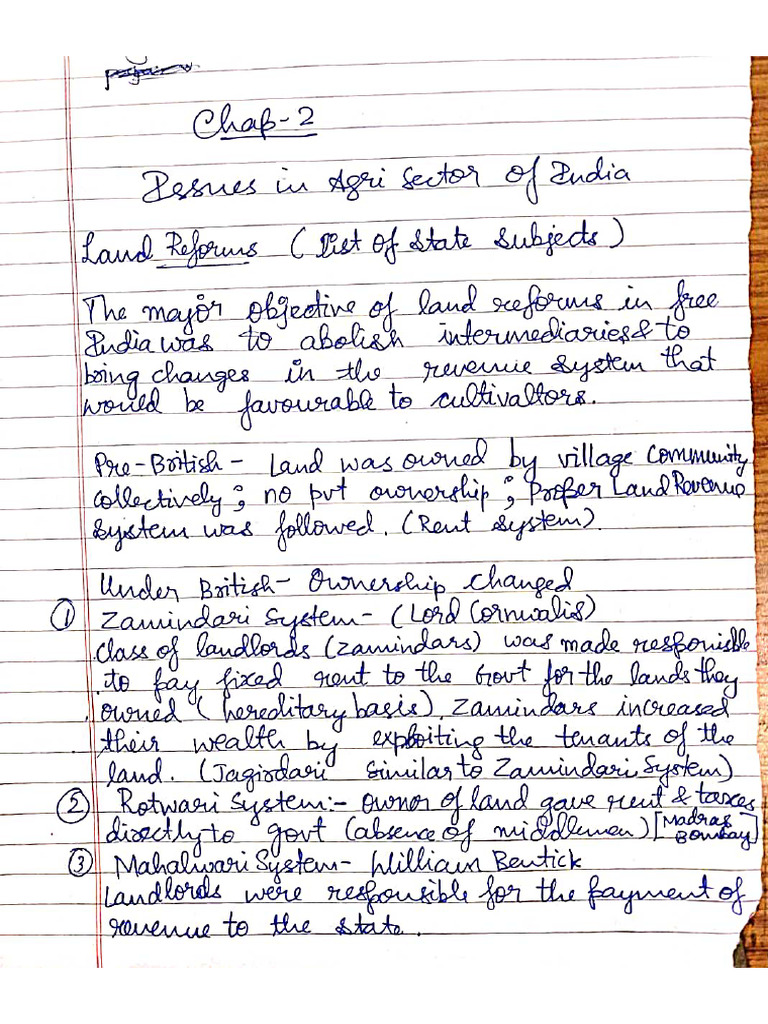 Chap-2
Issues in Agri Sector of India
Land Reforms (List of State Subjects)
The major objective of land reforms in free
India was to abolish intermediaries & to
bring changes in the revenue system that
would be favourable to cultivaltors.
Pre-British - Land was owned by village Community
collectively; no pvt ownership; Proper Land Revenue
System was followed. (Rent System)
Under British - Ownership Changed
① Zamindari System - (Lord Cornwalis)
Class of landlords (Zamindars) was made responisble
to pay fixed rent to the Govt for the lands they
owned (hereditary basis). Zamindars increased
their wealth by exploiting the tenants of the
land. (Jagirdari similar to Zamindari System)
② Rotwari System:- owner of land gave rent & taxes
directly to govt (absence of middlemen) [Madras Bombay]
③ Mahalwari System - William Bentick
Landlords were responsible for the payment of
revenue to the state.